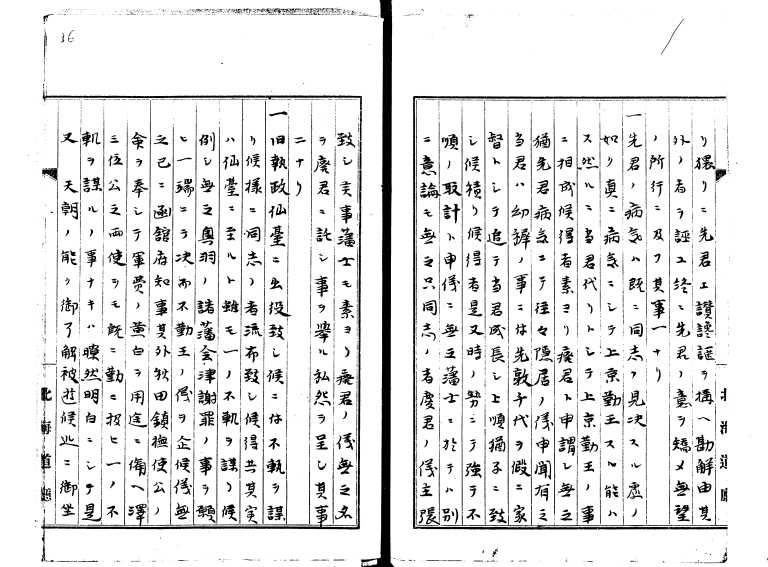 り猥リニ先君ニ讃讒謡ヲ構ヘ勘解由其
外ノ者ヲ誣ヱ終ニ先君ノ意ヲ矯メ無望
ノ所行ニ及フ其事一ナリ
一先君ノ病気ハ既ニ同志ノ見決スル處ノ
如ク真ニ病気ニシテ上京勤王スル能ハ
ス然ルニ当君代リトシテ上京勤王ノ事
ニ相成候得者素ヨリ廃君ト申謂レ無之
猶先君病気ニテ往々隠居ノ儀申聞有之
当君ハ幼稚ノ事ニ付先敦千代ヲ假ニ家
督トシテ追テ当君成長シ上順猶子ニ致
シ候積リ候得者是又時ノ勢ニシテ強テ不
順ノ取計ト申儀ニ無之藩士ニ於テハ別
ニ意論モ無之只同志ノ者廃君ノ儀主張
致シ実事藩士モ素ヨリ廃君ノ儀無之名
ヲ廃君ニ託シ事ヲ挙ル私怨ヲ呈シ其事
ニナリ
一旧執政仙臺ニ出役致シ候ニ付不軌ヲ謀
リ候様ニ同志ノ者流布致シ候得共其実
ハ仙臺ニ至ルト雖モ一ノ不軌ヲ謀リ候
例シ無之奥羽ノ諸藩会津謝罪ノ事ヲ願
ヒ一端ニヲ決而不勤王ノ儀ヲ企候儀無
之已ニ函舘府知事其外秋田鎮撫使公ノ
命ヲ奉シテ軍費ノ藁白ヲ用途ニ備ヘ澤
三位公之両使ヲモ既ニ勤ニ扱ヒ一ノ不
軌ヲ謀ルノ事ナキハ瞭然明白ニシテ是
又 天朝ノ能ク御了解被遊候処ニ御坐
北海道廳
北海道廳
36